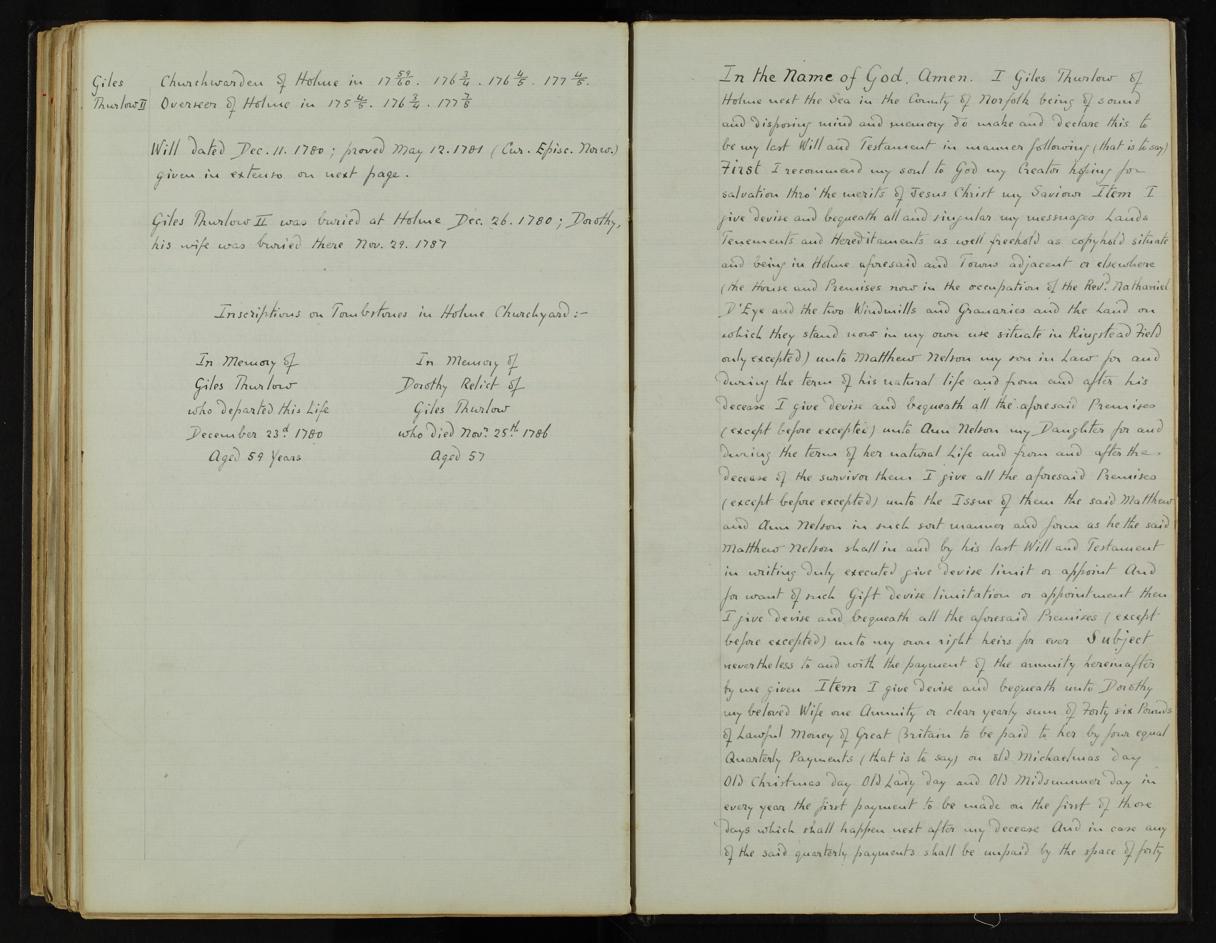 Giles Churchwarden of Holme in 17 59/60. 176 3/4. 176 4/5. 177 4/5.
Thurlow II Overseer of Holme in 175 4/5. 176 3/4. 177 7/8
Will dated Dec. 11. 1780; proved May 12. 1781 (Cur. Episc. Norw.)
given in extenso on next page.
Giles Thurlow II was buried at Holme Dec. 26. 1780; Dorothy,
his wife was buried there Nov. 29. 1787
Inscriptions on Tombstones in Holme Churchyard:-
In Memory of
Giles Thurlow
who departed this Life
December 23d 1780
Aged 59 Years
In Memory of
Dorothy Relict of
Giles Thurlow
who died Novr. 25th 1786
Aged 57
In the Name of God, Amen. I Giles Thurlow of
Holme next the Sea in the County of Norfolk being of sound
and disposing mind and memory do make and declare this to
be my last Will and Testament in manner following (that is to say)
First I recommend my soul to God my Creator hoping for
salvation thro' the merits of Jesus Christ my Saviour Item I
give devise and bequeath all and singular my messuages Lands
Tenements and Hereditaments as well freehold as copyhold situate
and being in Holme aforesaid and Towns adjacent or elsewhere
(the House and Premises now in the occupation of the Revd. Nathaniel
D'Eye and the two Windmills and Granaries and the Land on
which they stand now in my own use situate in Ringstead Field
only excepted) unto Matthew Nelson my son in Law for and
during the term of his natural life and from and after his
decease I give devise and bequeath all the aforesaid Premises
(except before excepted) unto Ann Nelson my Daughter for and
during the term of her natural Life and from and after the
decease of the survivor them I give all the aforesaid Premises
(except before excepted) unto the Issue of them the said Matthew
and Ann Nelson in such sort manner and form as he the said
Matthew Nelson shall in and by his last Will and Testament
in writing duly executed give devise limit or appoint And
for want of such Gift devise limitation or appointment then
I give devise and bequeath all the aforesaid Premises (except
before excepted) unto my own right heirs for ever Subject
nevertheless to and with the payment of the annuity hereinafter
by me given Item I give devise and bequeath unto Dorothy
my beloved Wife one Annuity or clear yearly sum of Forty six Pounds
of Lawful Money of Great Britain to be paid to her by four equal
Quarterly Payments (that is to say) on old Michaelmas day
Old Christmas day Old Lady day and Old Midsummer day in
every year the first payment to be made on the first of those
days which shall happen next after my decease And in case any
of the said quarterly payments shall be unpaid by the space of forty